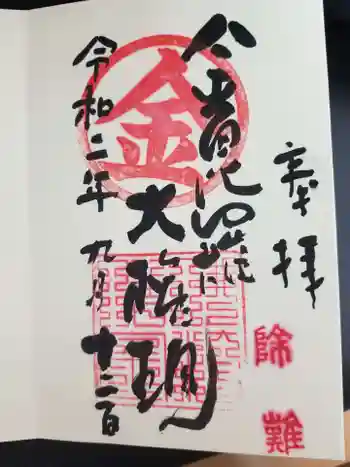 奉拝
除難
金毘羅
大権現
金
令和二年九月十二日